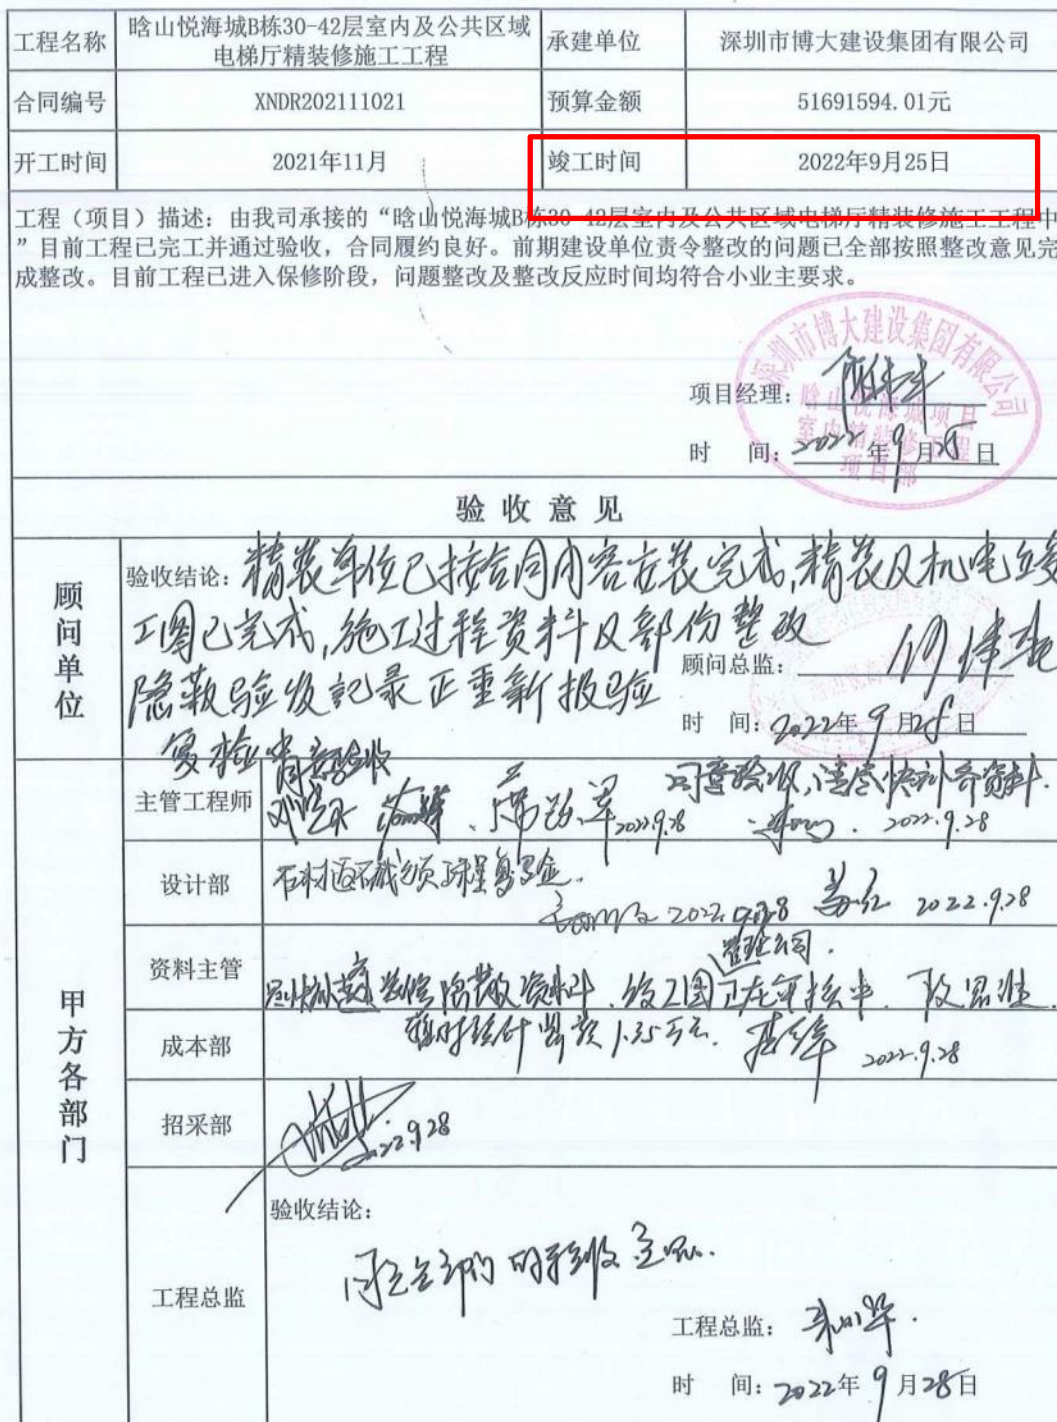 工程名称 晗山悦海城B栋30-42层室内及公共区域 承建单位 深圳市博大建设集团有限公司
电梯厅精装修施工工程
合同编号 XNDR202111021 预算金额 51691594.01元
开工时间 2021年11月 竣工时间 2022年9月25日
工程（项目）描述：由我司承接的“晗山悦海城B栋30-42层室内及公共区域电梯厅精装修施工工程中
”目前工程已完工并通过验收，合同履约良好。前期建设单位责令整改的问题已全部按照整改意见完
成整改。目前工程已进入保修阶段，问题整改及整改反应时间均符合小业主要求。
深圳市博大建设集团有限公司
晗山悦海城项目
室内精装修工程
项目部
项目经理：
时 间：2022年9月25日
验收意见
顾问单位
验收结论：精装单位已按合同内容安装完成,精装及机电竣
工图已完成,施工过程资料及部份整改
隐蔽验收记录正重新报验
顾问总监：
时 间：2022年9月28日
甲方各部门
主管工程师 同意验收,请尽快补齐资料.
2022.9.28 2022.9.28
设计部 2022.9.28
2022.9.28
资料主管 隐蔽资料、竣工图正在审核中.
成本部 2022.9.28
招采部 2022.9.28
工程总监
验收结论：
同意各部门的验收意见.
工程总监：
时 间：2022年9月28日